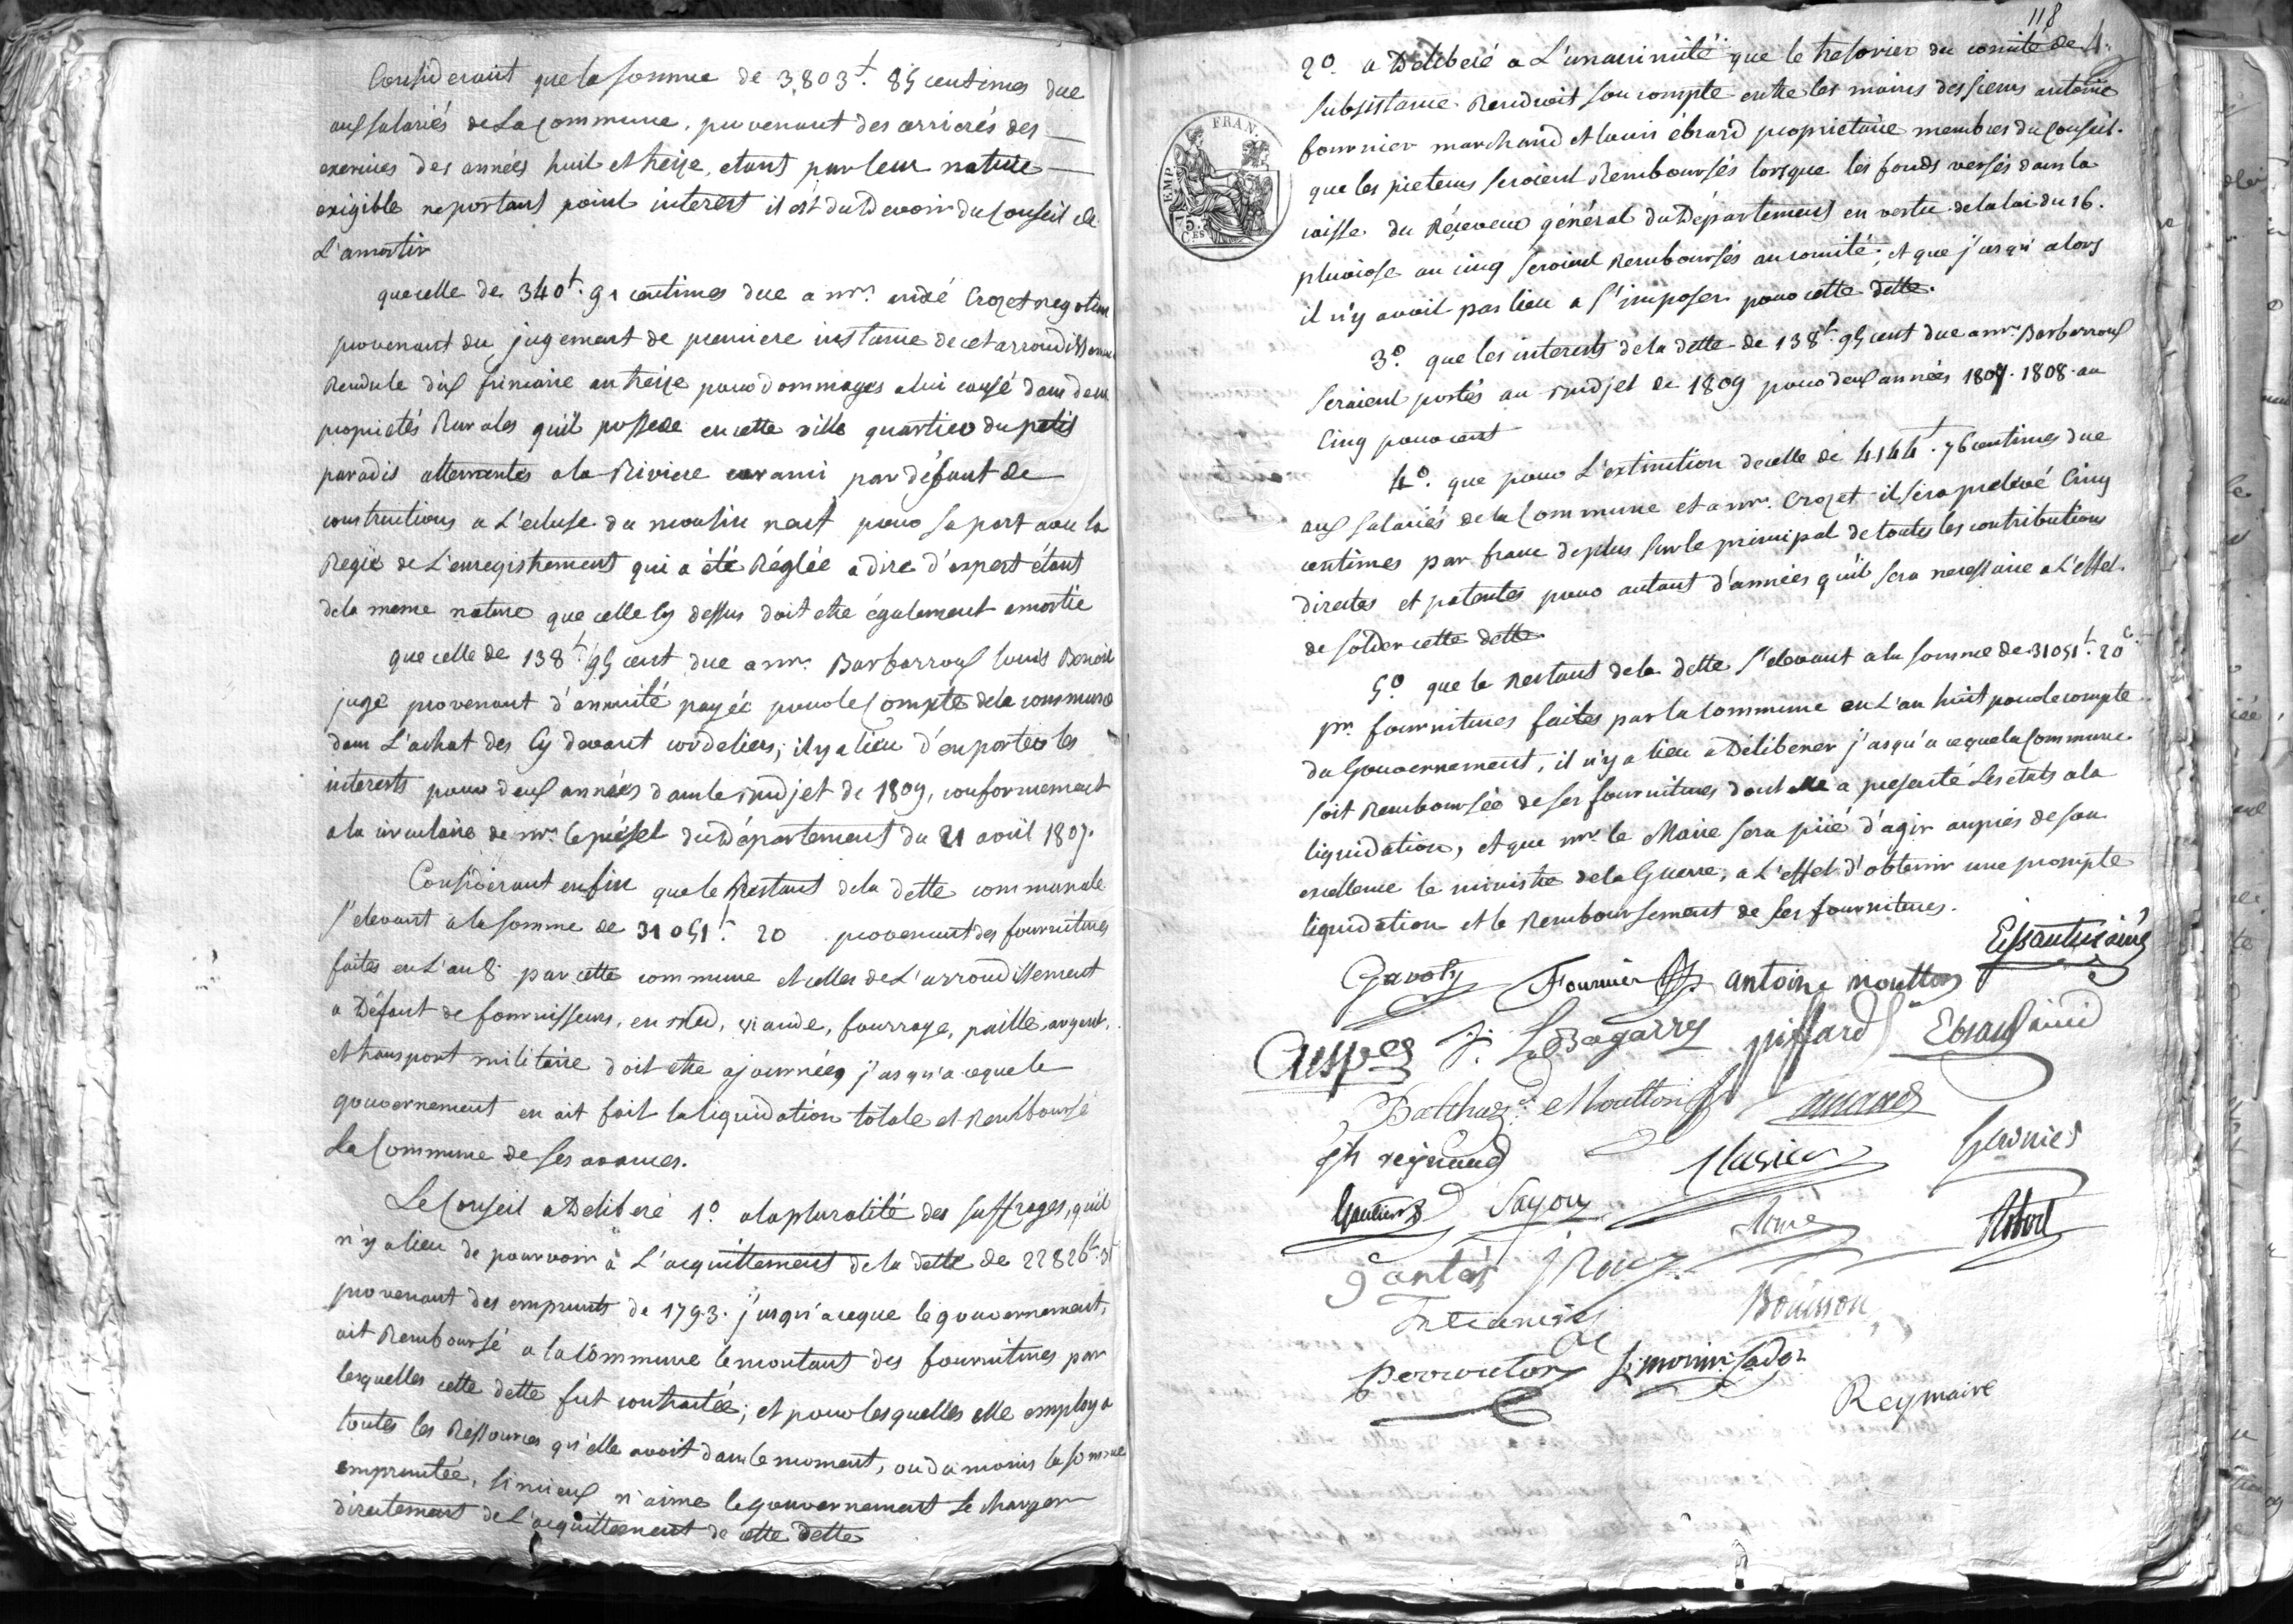 Considerant que la somme de 3,803₶. 85 centimes due
aux salariés de La Commune, provenant des arrierés des
exercices des années huit et treize, etant par leur nature
exigible ne portant point interest il est du Devoir du Conseil de
L'amortir
que celle de 340₶. 91 centimes due a mr. andé Crozet negotient
provenant du jugement de premiere instance de cet arrondissement
Rendu le dix frimaire an treize pour dommages a lui causé dans deux
proprietés Rurales qu'il possede en cette ville quartier du petit
paradis attenantes a la Riviere carami par défaut de
constructions a L'ecluse du moulin neuf pour sa part avec la
Regie de L'enregistrement qui a été Réglée a dire d'expert étant
de la meme nature que celle Cy dessus doit etre également amortie
que celle de 138₶. 95 cent due a mr. Barbarroux Louis Benoit
juge provenant d'annuité payée pour le Compte de la commune
dans L'achat des Cy devant cordeliers; il y a lieu d'en porter les
interests pour deux années dans le Budjet de 1809, conformement
a la circulaire de mr. le préfet du Département du 21 avril 1807.
Considérant enfin que le Restant de la dette communale
s'elevant a la somme de 31051₶. 20 provenant des fournitures
faites en L'an 8. par cette commune et celles de L'arrondissement
a Défaut de fournisseurs, en bled, viande, fourrage, paille, argent,
et transport militaire doit etre ajournée, jusqu'a ceque le
gouvernement en ait fait la liquidation totale et Remboursé
La Commune de ses avances.
Le Conseil a Deliberé 1º. a la pluralité des suffrages, qu'il
n'y a lieu de pourvoir à L'acquittement de la dette de 22826₶. 31
provenant des emprunts de 1793. jusqu'a ceque le gouvernement,
ait Remboursé a la Commune le montant des fournitures par
lesquelles cette dette fut contractée; et pour lesquelles elle employa
toutes les Ressources qu'elle avoit dans le moment, ou du moins la somme
empruntée, si mieux n'aime le gouvernement se charger
directement de L'acquittement de cette Dette
118
2º. a Deliberé a L'unanimité que le tresorier du comité de
subsistance Rendroit son compte entre les mains des sieurs antoine
fournier marchand et Louis ébrard proprietaire membres du Conseil.
que les preteurs seroient Remboursés lorsque les fonds versés dans la
caisse du Réceveur général du Département en vertu de la loi du 16.
pluviose an cinq seroient Remboursés au comité; et que jusqu'alors
il n'y avoit pas lieu a s'imposer pour cette dette.
3º. que les interests de la dette de 138₶. 95 cent due a mr. Barbarroux
seroient portés au Budjet de 1809 pour deux années 1807. 1808. au
Cinq pour cent
4º. que pour L'extinction de celle de 4144₶. 76 centimes due
aux salariés de la Commune et a mr. Crozet il sera prelevé Cinq
centimes par franc de plus sur le principal de toutes les contributions
directes et patentes pour autant d'années qu'il sera necessaire a L'effet
de solder cette dette.
5º. que le Restant de la dette s'elevant a la somme de 31051₶. 20 c.
pr. fournitures faites par la Commune en L'an huit pour le compte
du Gouvernement, il n'y a lieu a Déliberer jusqu'a ceque la Commune
soit Remboursée de ses fournitures dont elle a presenté Les etats a la
liquidation, et que mr. le Maire sera prié d'agir auprés de son
excellence le ministre de la Guerre, a L'effet d'obtenir une prompte
liquidation et le Remboursement de ses fournitures.
EMP. FRAN.
75. C.ES
Gavoty Fournier antoine moutton
Crespes J. L. Bagarry piffard Ebrard ainé
Balthaz.d Moutton
reynaud Garnier
Sayou
Pantés J. Roux
Bouisson
perroutory
Rey maire